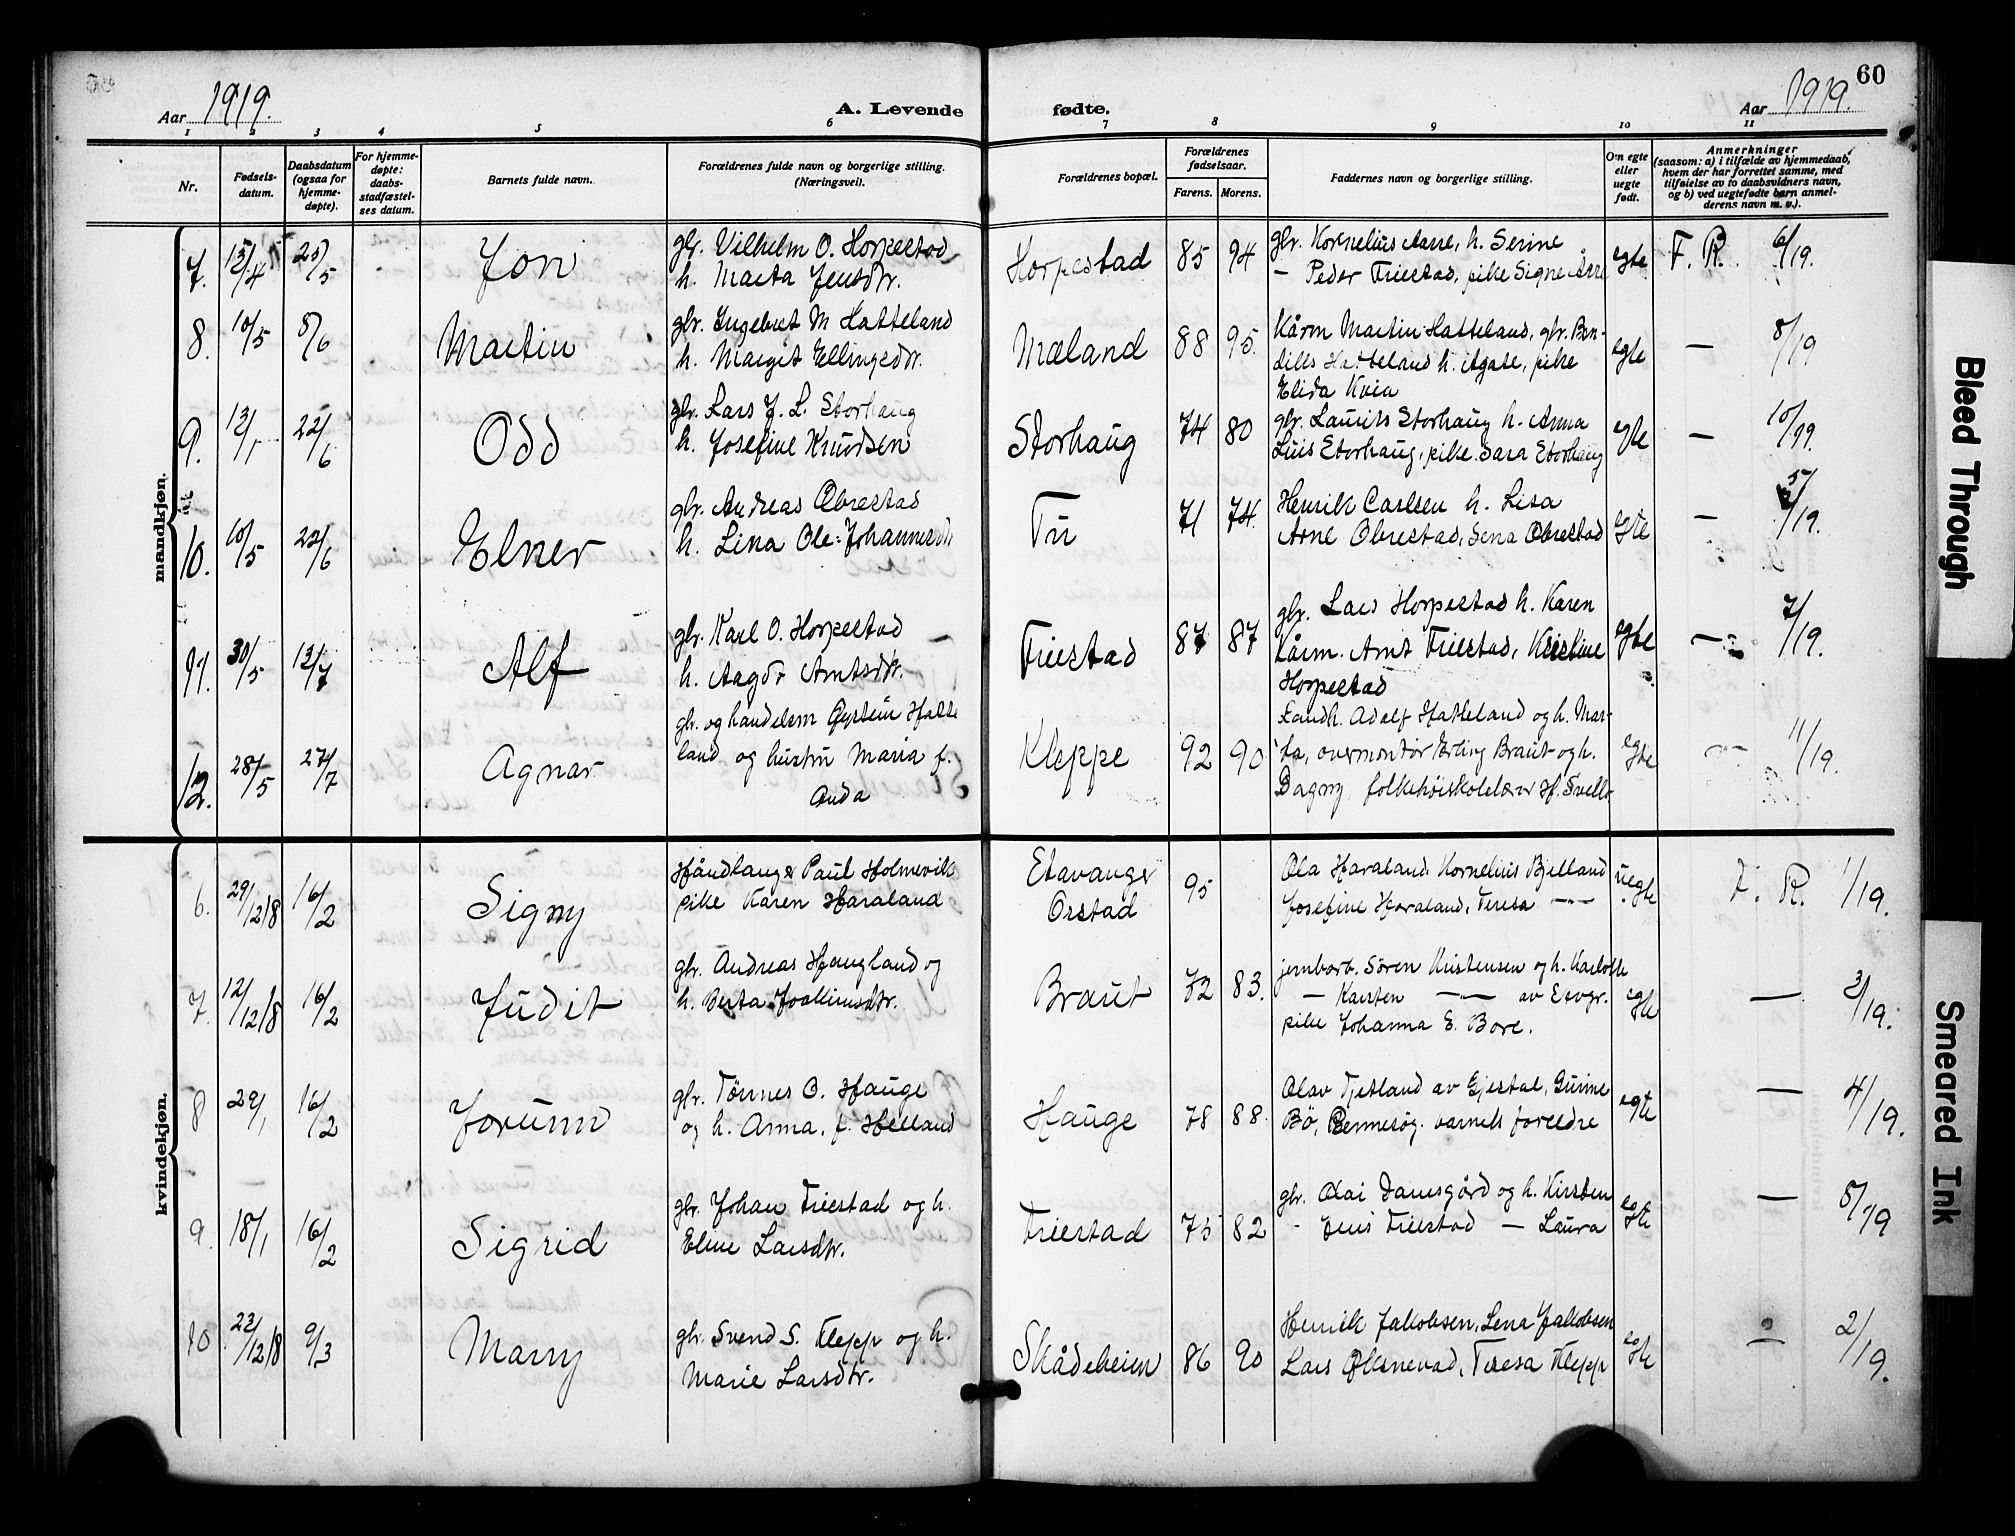 60
Aar 1919.
A. Levende fødte.
Aar 1919.
1 2 3 4 5 6 7 8 9 10 11
Nr.
Fødsels-
datum.
Daabsdatum
(ogsaa for
hjemme-
døpte).
For hjemme-
døpte:
daabs-
stadfæstel-
ses datum.
Barnets fulde navn.
Forældrenes fulde navn og borgerlige stilling.
(Næringsvei).
Forældrenes bopæl.
Forældrenes
fødselsaar.
Farens. Morens.
Faddernes navn og borgerlige stilling.
Om egte
eller
uegte
født.
Anmerkninger
(saasom: a) i tilfælde av hjemmedaab,
hvem der har forrettet samme, med
tilføielse av to daabsvidners navn,
og b) ved uegtefødte barn anmel-
derens navn m. v.).
mandkjøn.
7. 13/4 25/5 Jon
gbr. Vilhelm O. Horpestad
h. Marta Jensdtr.
Horpestad 85 94
gbr. Kornelius Aarre, h. Serine
— Peder Friestad, pike Signe Årre
egte F. R. 6/19.
8. 10/5 8/6 Martin
gbr. Ingebret M Hatteland
h. Margit Ellingsdtr.
Mæland 88 95.
Kårm Martin Hatteland, gbr. Ben-
dikts Hatteland h. Agate, pike
Elida Kvia
egte — 8/19
9. 13/1 22/6 Odd
gbr. Lars J. L. Storhaug
h. Josefine Knudsen
Storhaug 74 80
gbr. Laurits Storhaug h. Anna
Luis Storhaug, pike Sara Storhaug
egte — 10/19.
10. 10/5 22/6 Elner
gbr. Andreas Obrestad
h. Lina Ole-Johannesdtr
Tu 71 74.
Henrik Carlsen h. Lisa
Arne Obrestad, Sena Obrestad
egte — 5/19.
11. 30/5 13/7 Alf
gbr. Karl O. Horpestad
h. Aagot Arntsdtr.
Friestad 87 87
gbr. Lars Horpestad h. Karen
Kårm. Arnt Friestad, Kristine
Horpestad
egte — 7/19.
12. 28/5 27/7 Agnar
gbr. og handelsm Øystein Hatte
land og hustru Maria f.
Anda
Kleppe 92 90
Landh. Adolf Hatteland og h. Mar-
ta, overmontør Erling Braut og h.
Dagny, folkehøiskolelærer H. Tvellt
egte — 11/19.
kvindekjøn.
6. 29/12 18 16/2 Signy
Håndlanger Paul Holmevik
pike Karen Haraland
Stavanger
Orstad
95
Ola Haraland Kornelius Bjelland
Josefine Haraland, Teresa —"—
uegte F. R. 1/19.
7. 12/12 18 16/2 Judit
gbr. Andreas Haugland og
h. Berta Joakimsdtr.
Braut 72 83.
jernbarb. Søren Kristensen og h. Karlotte
— Karsten —"— av Stvgr.
pike Johanna E. Bore.
egte — 3/19.
8 29/1 16/2 Jorunn
gbr. Tønnes O. Hauge
og h. Anna, f. Helland
Hauge 78 88.
Olav Tjetland av Gjestal, Gurine
Bø, Rennesøy. barnets foreldre
egte — 4/19.
9. 18/1 16/2 Sigrid
gbr. Johan Friestad og h.
Eline Larsdtr.
Friestad 75 82
gbr. Olai Damsgård og h. Kirsten
" Jens Friestad — Laura
egte — 5/19
10 23/12 18 9/3 Marry
gbr. Svend S. Klepp og h.
Marie Larsdtr.
Skådeheien 86 90
Henrik Jakobsen, Lena Jakobsen
Lars Øksnevad, Teresa Klepp
egte — 2/19.
Bleed Through
Smeared Ink